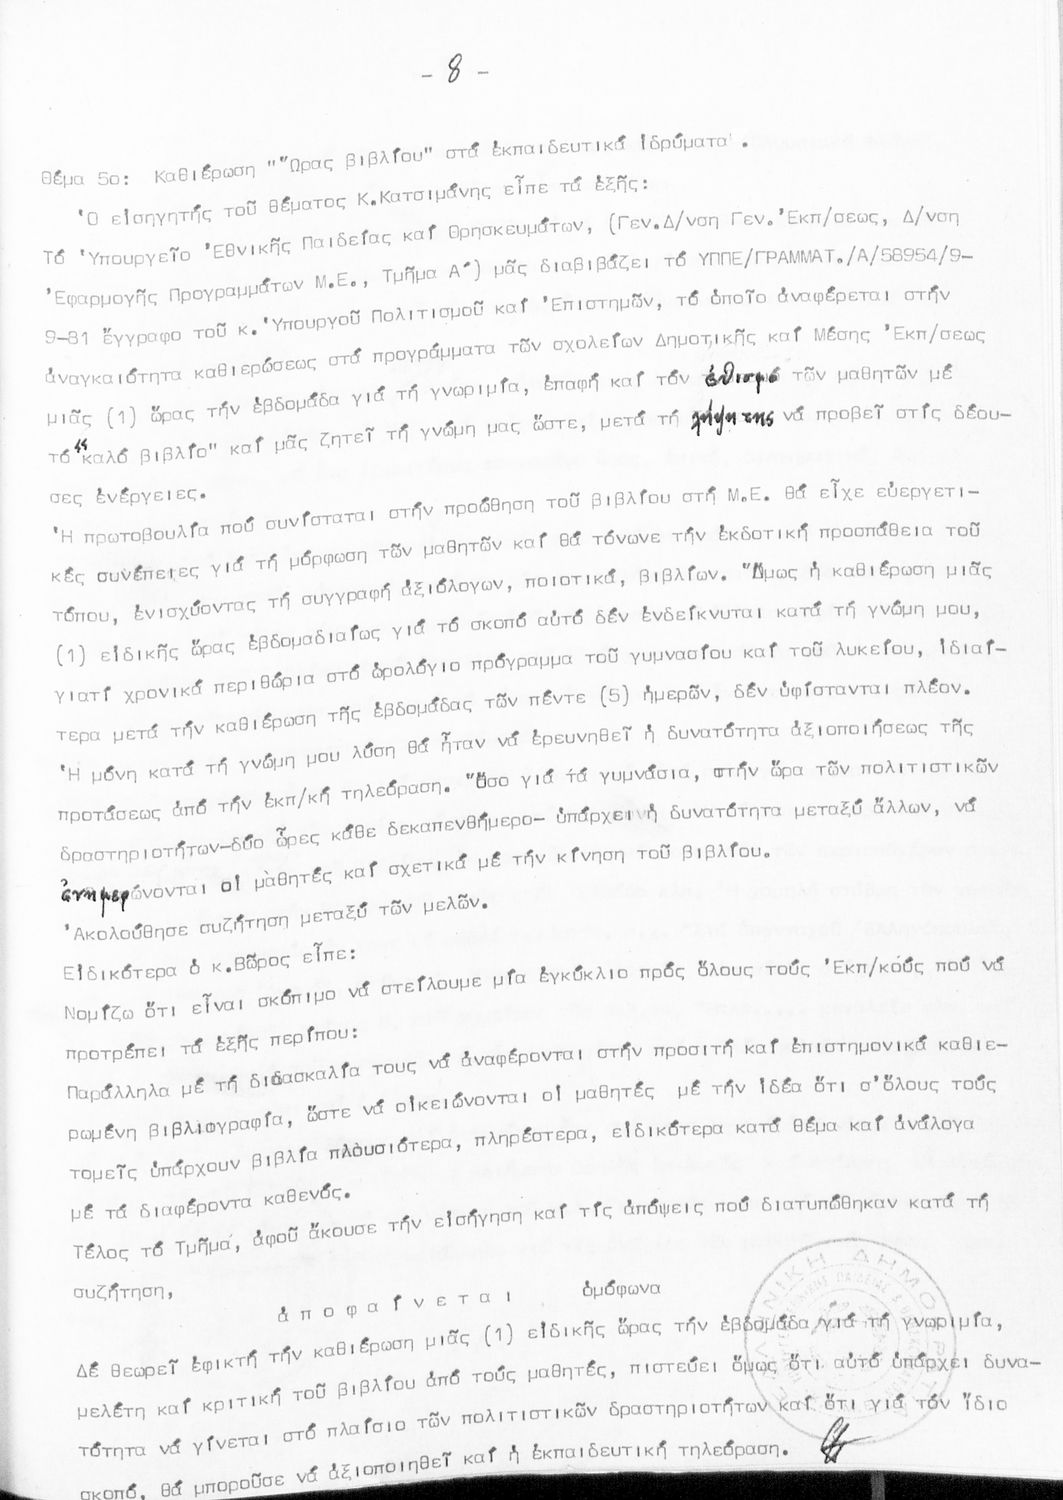 - 8 -
Θέμα 5ο: Καθιέρωση "Ὥρας βιβλίου" στά ἐκπαιδευτικά ἱδρύματα.
Ὁ εἰσηγητής τοῦ θέματος Κ.Κατσιμάνης εἶπε τά ἑξῆς:
Τό Ὑπουργεῖο Ἐθνικῆς Παιδείας καί Θρησκευμάτων, (Γεν.Δ/νση Γεν.Ἐκπ/σεως, Δ/νση
Ἐφαρμογῆς Προγραμμάτων Μ.Ε., Τμῆμα Α΄) μᾶς διαβιβάζει τό ΥΠΠΕ/ΓΡΑΜΜΑΤ./Α/58954/9-
9-81 ἔγγραφο τοῦ κ.Ὑπουργοῦ Πολιτισμοῦ καί Ἐπιστημῶν, τό ὁποῖο ἀναφέρεται στήν
ἀναγκαιότητα καθιερώσεως στά προγράμματα τῶν σχολείων Δημοτικῆς καί Μέσης Ἐκπ/σεως
μιᾶς (1) ὥρας τήν ἑβδομάδα γιά τή γνωριμία, ἐπαφή καί τόν ἐθισμό τῶν μαθητῶν μέ
τό "καλό βιβλίο" καί μᾶς ζητεῖ τή γνώμη μας ὥστε, μετά τή λήψη της νά προβεῖ στίς δέου-
σες ἐνέργειες.
Ἡ πρωτοβουλία πού συνίσταται στήν προώθηση τοῦ βιβλίου στή Μ.Ε. θά εἶχε εὐεργετι-
κές συνέπειες γιά τή μόρφωση τῶν μαθητῶν καί θά τόνωνε τήν ἐκδοτική προσπάθεια τοῦ
τόπου, ἐνισχύοντας τή συγγραφή ἀξιόλογων, ποιοτικά, βιβλίων. Ὅμως ἡ καθιέρωση μιᾶς
(1) εἰδικῆς ὥρας ἑβδομαδιαίως γιά τό σκοπό αὐτό δέν ἐνδείκνυται κατά τή γνώμη μου,
γιατί χρονικά περιθώρια στό ὡρολόγιο πρόγραμμα τοῦ γυμνασίου καί τοῦ λυκείου, ἰδιαί-
τερα μετά τήν καθιέρωση τῆς ἑβδομάδας τῶν πέντε (5) ἡμερῶν, δέν ὑφίστανται πλέον.
Ἡ μόνη κατά τή γνώμη μου λύση θά ἦταν νά ἐρευνηθεῖ ἡ δυνατότητα ἀξιοποιήσεως τῆς
προτάσεως ἀπό τήν ἐκπ/κή τηλεόραση. Ὅσο γιά τά γυμνάσια, στήν ὥρα τῶν πολιτιστικῶν
δραστηριοτήτων-δύο ὧρες κάθε δεκαπενθήμερο- ὑπάρχει ἡ δυνατότητα μεταξύ ἄλλων, νά
ἐνημερώνονται οἱ μαθητές καί σχετικά μέ τήν κίνηση τοῦ βιβλίου.
Ἀκολούθησε συζήτηση μεταξύ τῶν μελῶν.
Εἰδικότερα ὁ κ.Βῶρος εἶπε:
Νομίζω ὅτι εἶναι σκόπιμο νά στείλουμε μία ἐγκύκλιο πρός ὅλους τούς Ἐκπ/κούς πού νά
προτρέπει τά ἑξῆς περίπου:
Παράλληλα μέ τή διδασκαλία τους νά ἀναφέρονται στήν προσιτή καί ἐπιστημονικά καθιε-
ρωμένη βιβλιογραφία, ὥστε νά οἰκειώνονται οἱ μαθητές μέ τήν ἰδέα ὅτι σ'ὅλους τούς
τομεῖς ὑπάρχουν βιβλία πλουσιότερα, πληρέστερα, εἰδικότερα κατά θέμα καί ἀνάλογα
μέ τά διαφέροντα καθενός.
Τέλος τό Τμῆμα, ἀφοῦ ἄκουσε τήν εἰσήγηση καί τίς ἀπόψεις πού διατυπώθηκαν κατά τή
συζήτηση,
ἀποφαίνεται ὁμόφωνα
Δέ θεωρεῖ ἐφικτή τήν καθιέρωση μιᾶς (1) εἰδικῆς ὥρας τήν ἑβδομάδα γιά τή γνωριμία,
μελέτη καί κριτική τοῦ βιβλίου ἀπό τούς μαθητές, πιστεύει ὅμως ὅτι αὐτό ὑπάρχει δυνα-
τότητα νά γίνεται στό πλαίσιο τῶν πολιτιστικῶν δραστηριοτήτων καί ὅτι γιά τόν ἴδιο
σκοπό, θά μποροῦσε νά ἀξιοποιηθεῖ καί ἡ ἐκπαιδευτική τηλεόραση.